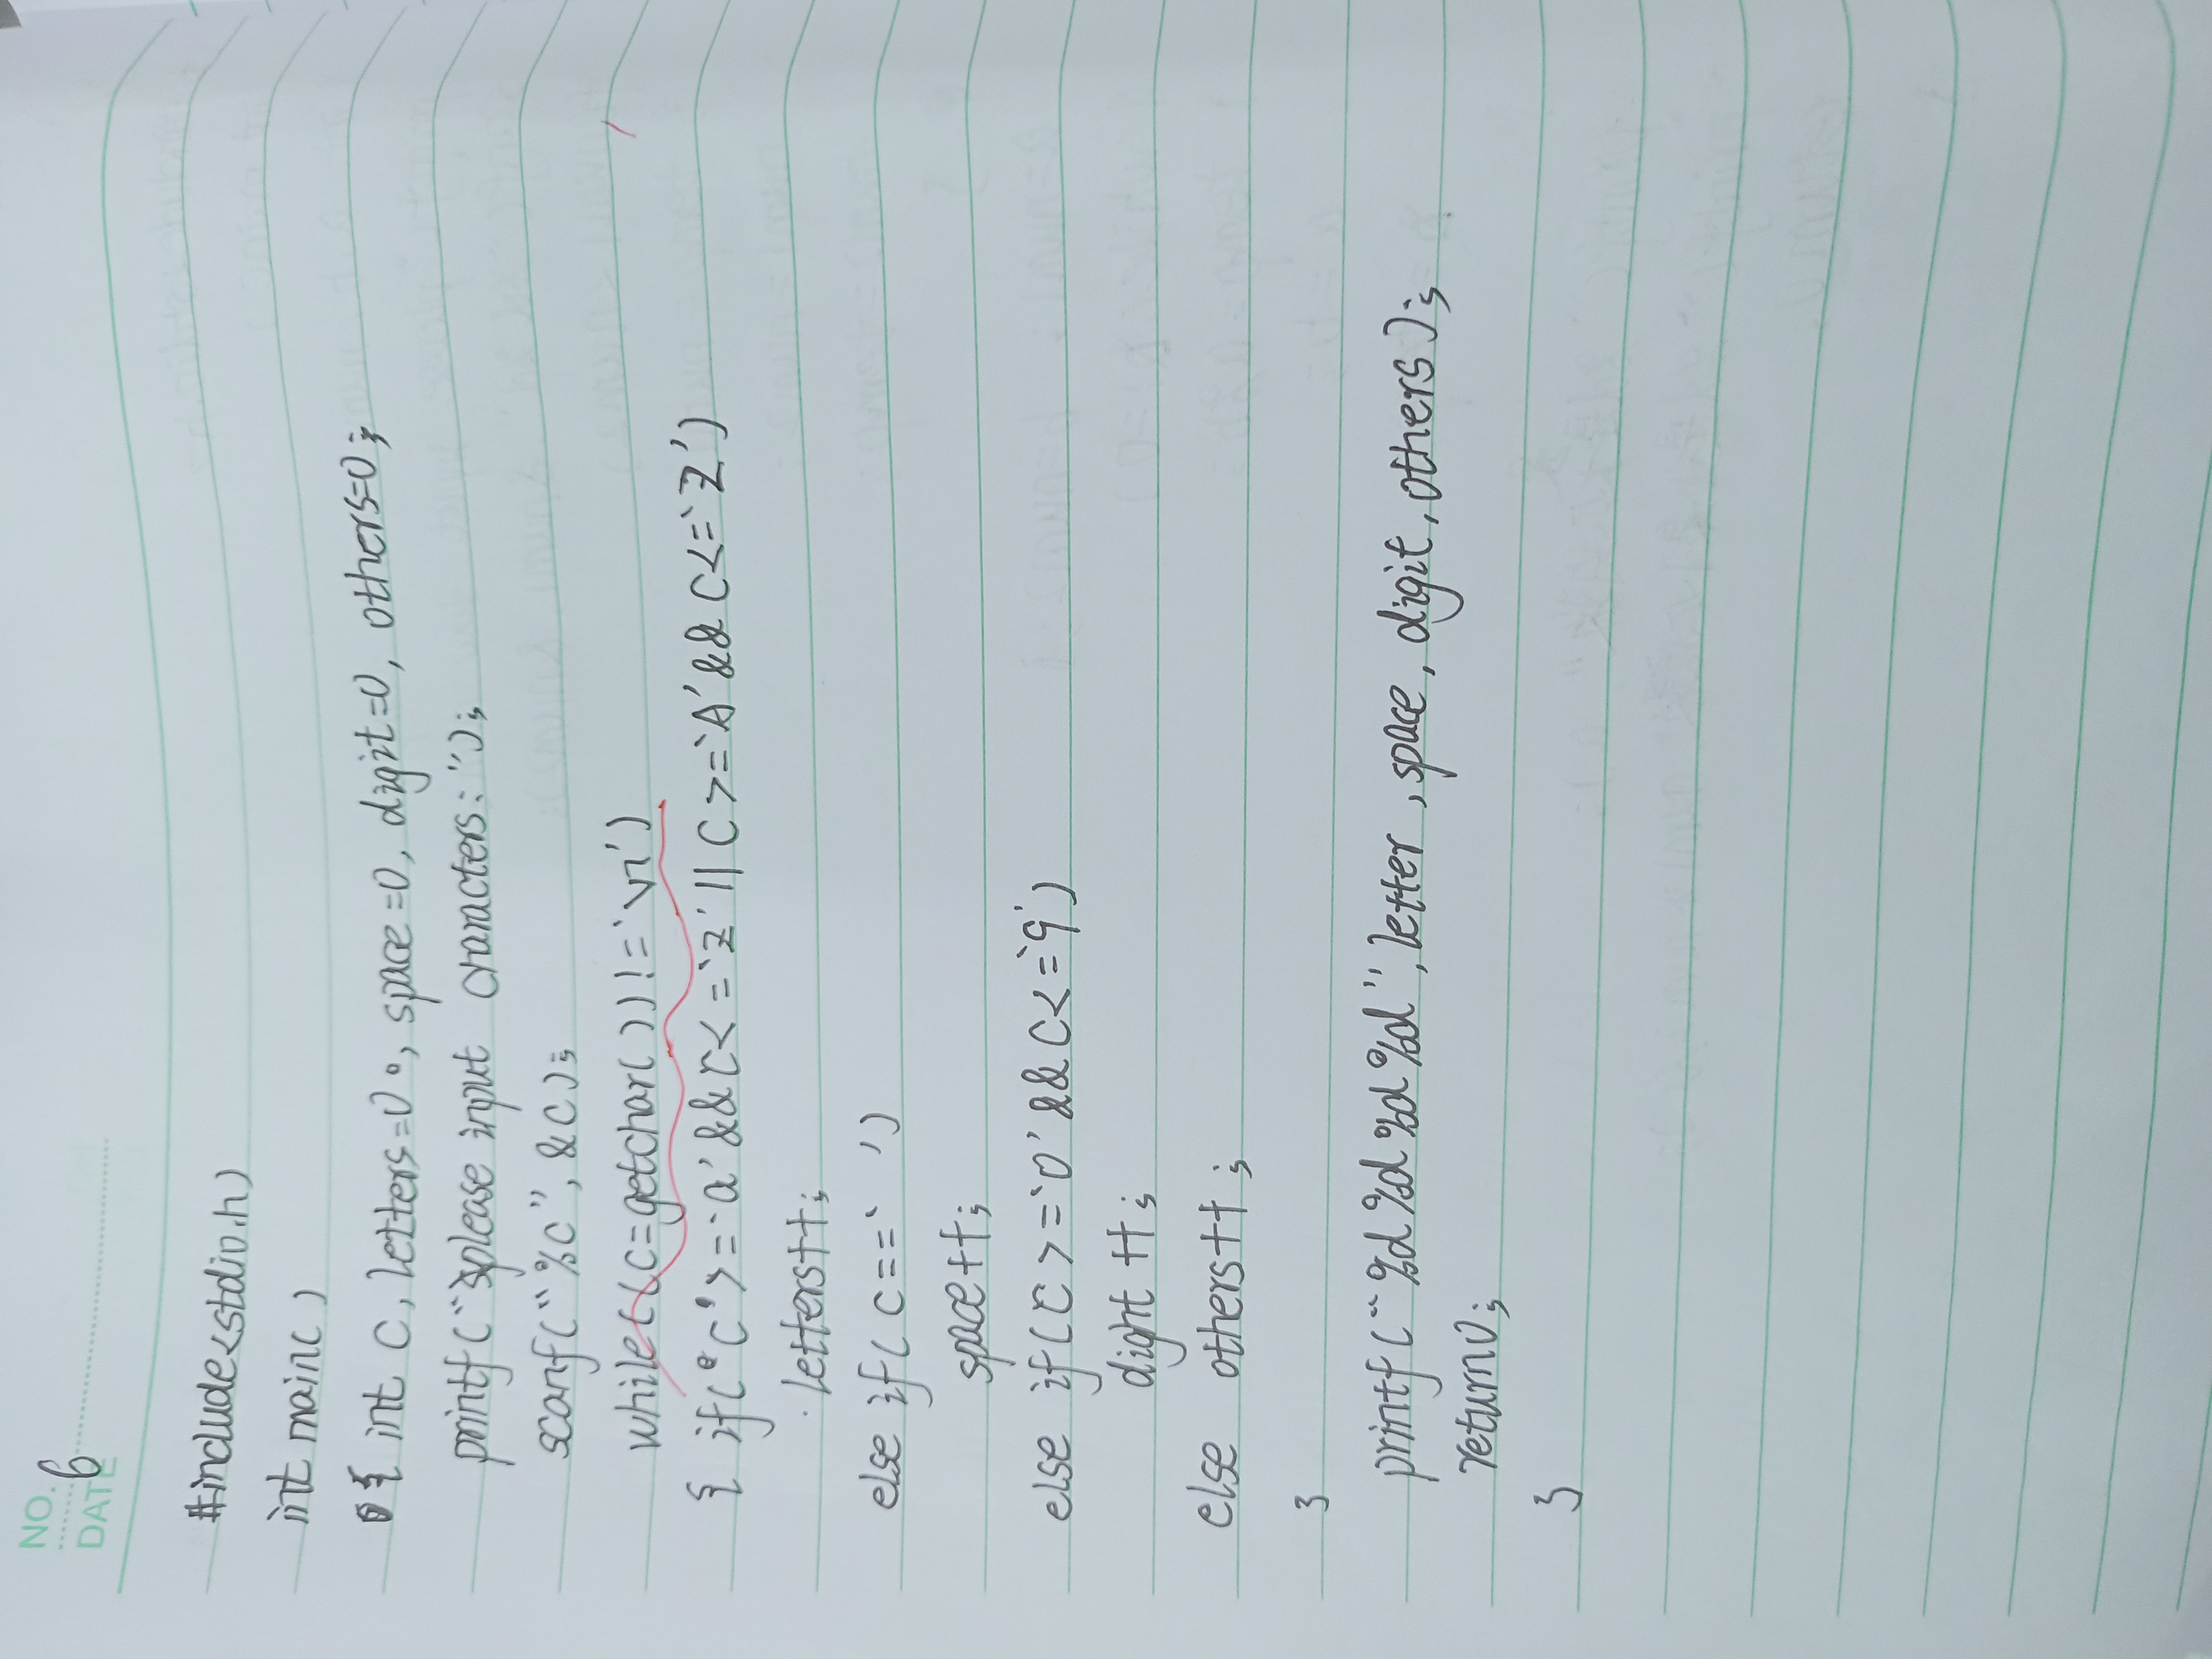 NO. 6
DATE
#include<stdio.h>
int main()
{ int c, letters=0, space=0, digit=0, others=0;
printf("please input characters:");
scanf("%c",&c);
while((c=getchar())!='\n')
{ if(c>='a'&&c<='z'||c>='A'&&c<='Z')
letters++;
else if(c==' ')
space++;
else if(c>='0'&&c<='9')
dight++;
else others++;
}
printf("%d%d%d%d",letter,space,digit,others);
return0;
}